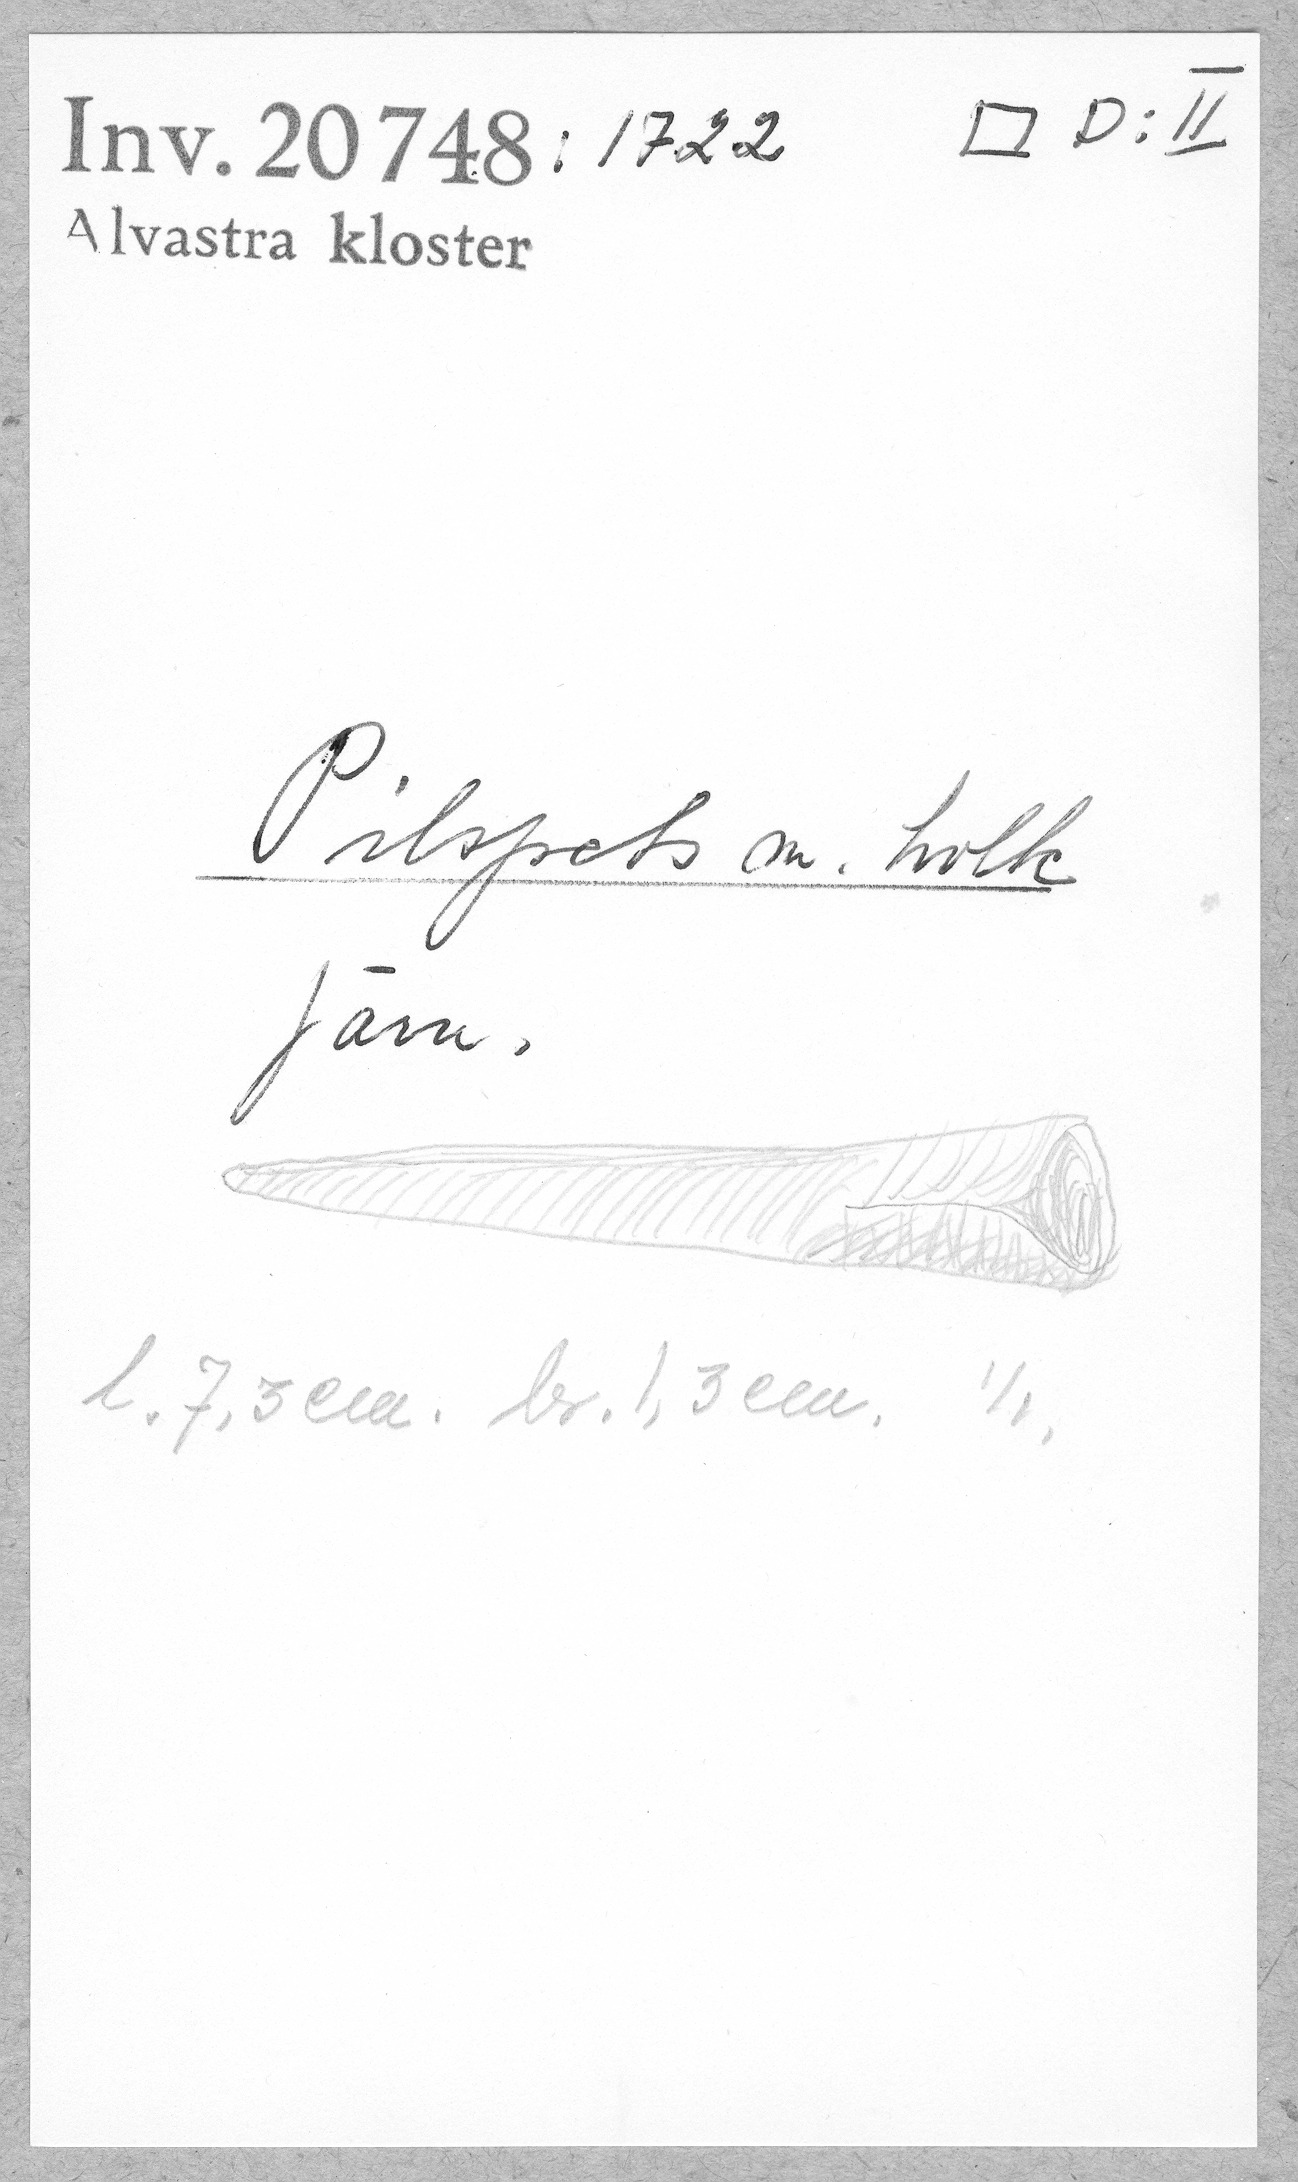 Inv. 20748 : 1722 □ D:II
Alvastra kloster
Pilspets m. holk
Järn.
l. 7,3 cm. br. 1,3 cm. 1/1.